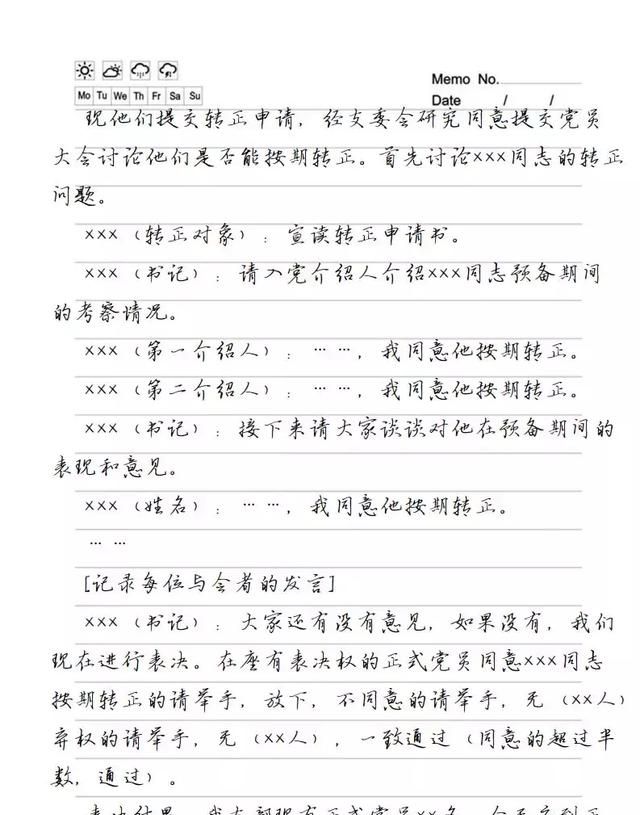 Memo No.
Mo Tu We Th Fr Sa Su
Date / /
现他们提交转正申请，经支委会研究同意提交党员
大会讨论他们是否能按期转正。首先讨论×××同志的转正
问题。
×××（转正对象）：宣读转正申请书。
×××（书记）：请入党介绍人介绍×××同志预备期间
的考察情况。
×××（第一介绍人）：……，我同意他按期转正。
×××（第二介绍人）：……，我同意他按期转正。
×××（书记）：接下来请大家谈谈对他在预备期间的
表现和意见。
×××（姓名）：……，我同意他按期转正。
……
[记录每位与会者的发言]
×××（书记）：大家还有没有意见，如果没有，我们
现在进行表决。在座有表决权的正式党员同意×××同志
按期转正的请举手，放下，不同意的请举手，无（××人）
弃权的请举手，无（××人），一致通过（同意的超过半
数，通过）。
表决结果，我支部现有正式党员××名，今天应到正